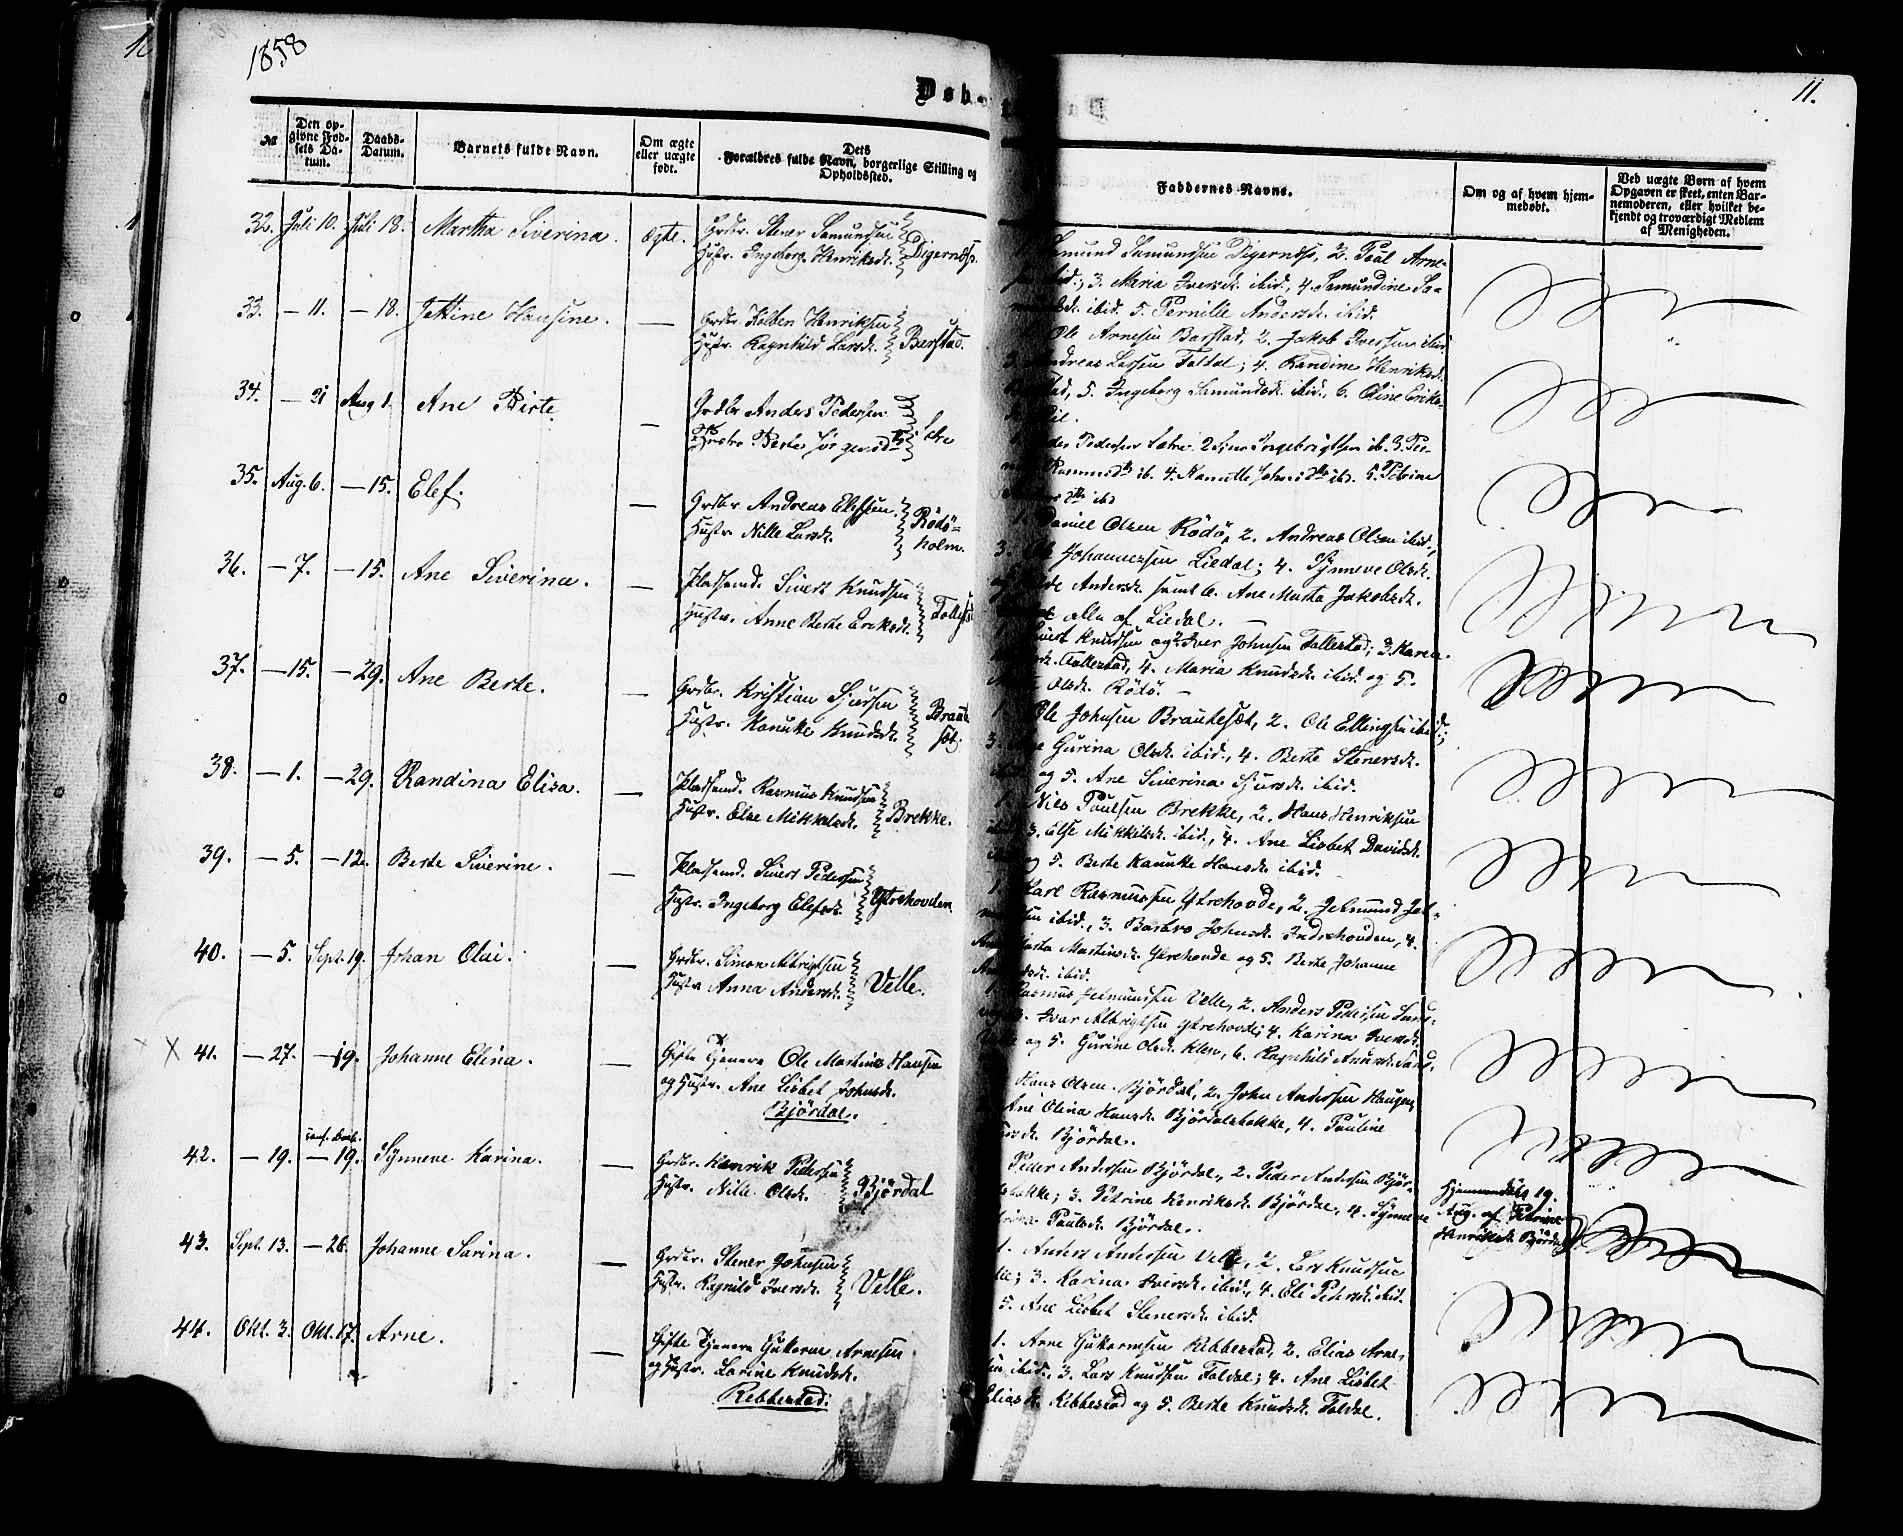 1858
11.
Døb-
No
Den op-
givne Fød-
sels Da-
tum.
Daabs-
Datum.
Barnets fulde Navn.
Om ægte
eller uægte
født.
Dets
Forældres fulde Navn, borgerlige Stilling og
Opholdssted.
Faddernes Navne.
Om og af hvem hjem-
medøbt.
Ved uægte Børn af hvem
Opgaven er skeet, enten Bar-
nemoderen, eller hvilket be-
kjendt og troværdigt Medlem
af Menigheden.
32. Juli 10. Juli 18. Martha Siverina. Ægte.
Grdbr. Stener Samundsen
Hustr. Ingeborg Henriksd. Digernæs.
Samundsen Digernæs, 2. Paul Arne-
ibid.; 3. Maria Iversd. ibid., 4. Samundine Sa-
ibid. 5. Pernille Andersd. ibid.
33. — 11. — 18. Jettine Hansine. —
Grdbr. Kolben Henriksen
Hustr. Ragnhild Larsd. Barstad.
Ole Arnesen Barstad, 2. Jakob Iversen ibid.
3. Andreas Larsen Foldal; 4. Randine Henriksd.
5. Ingeborg Samundsd. ibid., 6. Oline Eriks-
34. — 21 Aug 1. Ane Birte. —
Grdbr Anders Pedersen
Hustr. Berte Sætre
Pedersen Sætre. 2 Ingebrigtsen ib. 3. Pe-
ib. 4. ibd. 5. Petrine
ibd
35. Aug. 6. — 15. Elef. —
Grdbr Andreas Elefsen
Hustr. Nille Larsd. Rödö-
holm.
1. Daniel Olsen Rödö, 2. Andreas Olsen ibid.,
3. Ole Johannessen Liedal; 4. Synneve Olsd.
Andersd. samt 6. Ane Marta Jakobsd.
alle af Liedal. —
36. — 7. — 15. Ane Siverina. —
Pladsmd. Sivert Knudsen
Hustr. Anne Berte Eriksd.
Sivert Knudsen og 2. Iver Johnsen Follestad; 3. Karen
Follestad, 4. Maria Knudsd. ibid. og 5.
Olsd. Rödö. —
37. — 15. — 29. Ane Berte. —
Grdbr. Kristian Sjursen
Hustr. Hanikke Knudsd. Braute
sæt.
1. Ole Johnsen Brautesæt, 2. Ole Ellingsen ibid.;
3. Gurina Olsd. ibid., 4. Berte Stenersd.
og 5. Ane Siverina Sjursd. ibid.
38. — 1. — 29. Randina Elisa. —
Pladsmd. Rasmus Knudsen
Hustr. Else Mikkelsd. Brekke.
1. Nils Paulsen Brekke, 2. Hans Henriksen
3. Else Mikkelsd. ibid., 4. Ane Lisbet Davidsd.
og 5. Berte Hanikke Hansd. ibid.
39. — 5. — 12. Berte Siverine. —
Pladsmd. Sivert Pedersen
Hustr. Ingeborg Elefsd. Ytrehovden
1. Karl Rasmussen Ytrehovde, 2. Jetmund Jet-
ibid., 3. Barbro Johnsd. Indrehovden, 4.
Marta Martinsd. Ytrehovde og 5. Berte Johanne
ibid.
40. — 5. Sept. 19. Johan Olai. —
Grdbr. Simon Albrigtsen
Hustr Anna Andersd. Velle.
1. Rasmus Jetmundsen Velle, 2. Anders Pedersen
3. Ivar Albrigtsen Ytrehovde; 4. Karina Iversd.
og 5. Gurine Olsd. Klev, 6. Ragnhild
X 41. — 27. — 19. Johanne Elina. —
Gifte Tjenere Ole Martinus Hansen
og Hustr. Ane Lisbet Johnsd.
Bjørdal.
Hans Olsen Bjørdal, 2. John Andersen Haugen,
Ane Olina Hansd. Bjørdalsbakke, 4. Pauline
Bjørdal.
42. — 19. — 19. Synneve Karina. —
Grdbr. Henrik Pedersen
Hustr. Nille Olsd. Bjørdal
Peder Andersen Bjørdal, 2. Peder Andersen Bjør-
dalsbakke; 3. Petrine Henriksd. Bjørdal, 4. Synneve
Paulsd. Bjørdal.
Hjemmedöbt 19.
Aug. af Petrine
Henriksd. Bjørdal
43. Sept. 13. — 26. Johanne Sarina. —
Grdbr. Stener Johnsen
Hustr. Ragnild Iversd. Velle.
1. Anders Andersen Velle, 2. Lars Knudsen
3. Karina Iversd. ibid., 4. Eli Pedersd. ibid.
5. Ane Lisbet Stenersd. ibid.
44. Okt. 3. Okt. 17. Arne. —
Gifte Tjenere Guttorm Arnesen
og Hustr. Larine Knudsd.
Ribbestad.
1. Arne Guttormsen Ribbestad, 2. Elias Arne-
sen ibid. 3. Lars Knudsen Foldal; 4. Ane Lisbet
Eliasd. Ribbestad og 5. Berte Knudsd. Foldal.